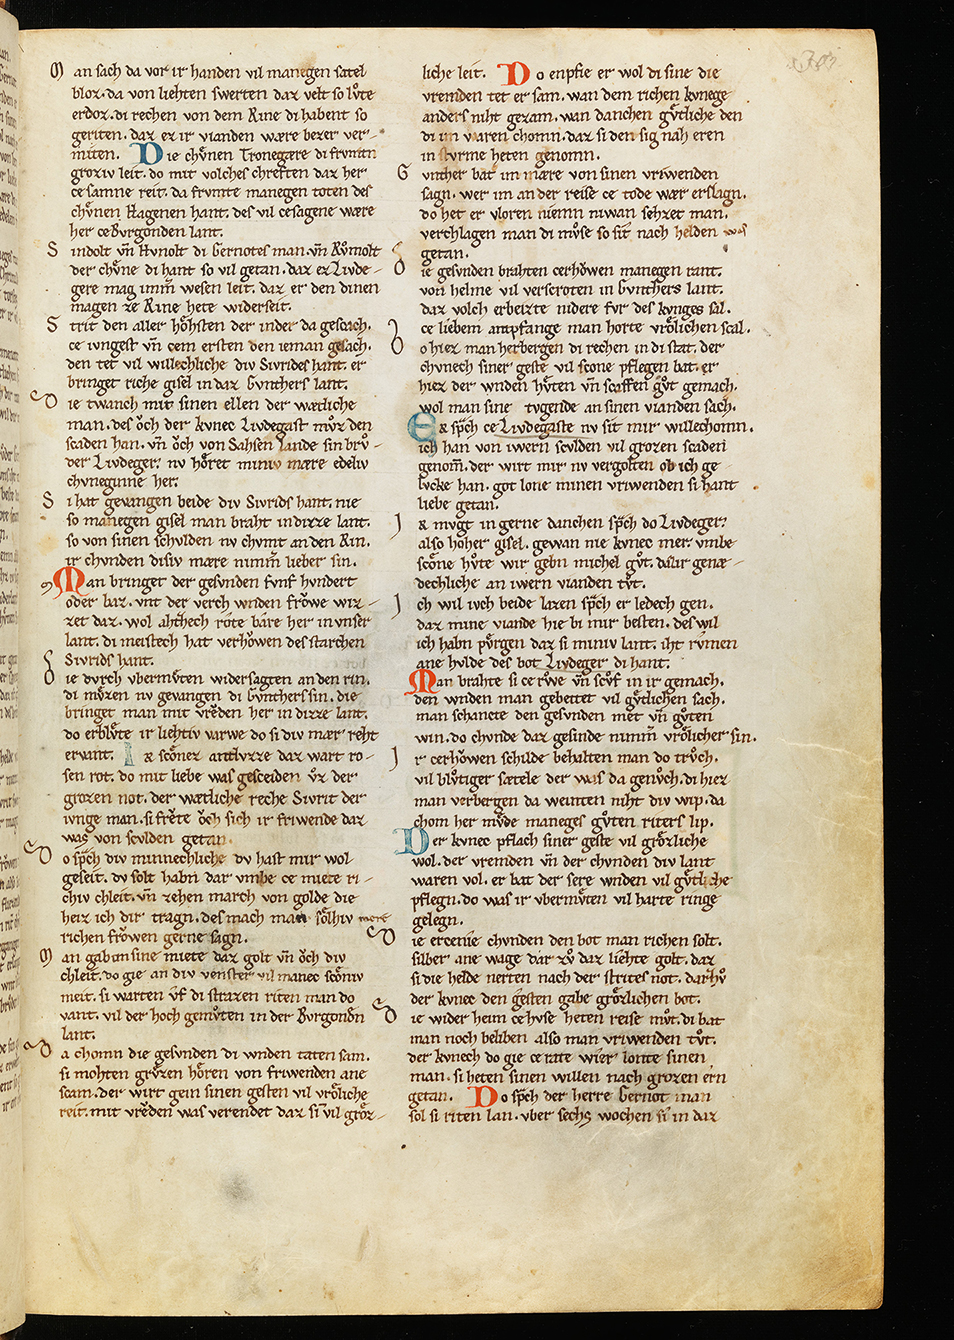 M an sach da vor ir handen vil manegen satel
bloz. da von liehten swerten daz velt so lvte
erdoz. di rechen von dem Rine di habent so
geriten. daz ez ir vianden wære bezer ver-
miten. Die chvͦnen Tronegære di frvmtn
groziv leit. do mit volches chreften daz her
ce samne reit. da frvmte manegen toten des
chvͦnen Hagenen hant. des vil ce sagene wære
her ce Bvrgonden lant.
S indolt vn̄ Hvnolt di Gernotes man. vn̄ Rvͦmolt
der chvͦne di hant so vil getan. daz ez Livde-
gere mag imm̄ wesen leit. daz er den dinen
magen ze Rine hete widerseit.
S trit den aller hoͤhsten der inder da gescach.
ce ivngest vn̄ cem ersten den ieman gesach.
den tet vil willechliche div Sivrides hant. er
bringet riche gisel in daz Gvnthers lant.
D ie twanch mit sinen ellen der wætliche
man. des oͮch der kvnec Livdegast mvͦz den
scaden han. vn̄ oͮch von Sahsen lande sin brvͦ-
der Livdeger. nv hoͤret miniv mære edeliv
chvneginne her.
S i hat gevangen beide div Sivrids hant. nie
so manegen gisel man braht in dizze lant.
so von sinen schvlden nv chvmt an den Rin.
ir chvnden disiv mære nimm̄ lieber sin.
Man bringet der gesvnden fvnf hvndert
oder baz. vnt der verch wnden froͮwe wiz-
zet daz. wol ahthech rote bare her in vnser
lant. di meistech hat verhoͮwen des starchen
Sivrids hant.
D ie dvrch vbermvͤten widersagten an den rin.
di mvͤzen nv gevangen di Gvnthers sin. die
bringet man mit vreͮden her in dizze lant.
do erblvͤte ir liehtiv varwe do si div mær reht
ervant. Iꝛ scoͤnez antlvzze daz wart ro-
sen rot. do mit liebe was gesceiden vͦz der
grozen not. der wætliche reche Sivrit der
ivnge man. si freͮte oͮch sich ir friwende daz
was von scvlden getan
D o sp̄ch div minnechliche dv hast mir wol
geseit. dv solt habn̄ dar vmbe ce miete ri-
chiv chleit. vn̄ zehen march von golde die
heiz ich dir tragn. des mach man soͤlhiv mere
richen froͮwen gerne sagn.
M an gab im sine miete daz golt vn̄ oͮch div
chleit. do gie an div venster vil manec scoͤniv
meit. si warten vf di strazen riten man do
vant. vil der hoch gemvͦten in der Bvrgondn̄
lant.
D a chomn die gesvnden di wnden taten sam.
si mohten grvͤzen hoͤren von friwenden ane
scam. der wirt gein sinen gesten vil vroͤliche
reit. mit vreͮden was verendet daz si vil groͤz-
liche leit. Do enpfie er wol di sine die
vremden tet er sam. wan dem richen kvnege
anders niht gezam. wan danchen gvͤtliche den
di im waren chomn. daz si den sig nah eren
in stvrme heten genomn.
G vnther bat im mære von sinen vriwenden
sagn. wer im an der reise ce tode wær erslagn.
do het er vloren niemn niwan sehzet man.
verchlagen man di mvͦse so sit nach helden was
getan.
D ie gesvnden brahten cerhoͮwen manegen rant.
von helme vil verscroten in Gvnthers lant.
daz volch erbeizte nidere fvr des kvnges sal.
ce liebem antpfange man horte vroͤlichen scal.
D o hiez man herbergen di rechen in di stat. der
chvnech siner geste vil scone pflegen bat. er
hiez der wnden hvͤten vn̄ scaffen gvͦt gemach.
wol man sine tvgende an sinen vianden sach.
Eꝛ sp̄ch ce Livdegaste nv sit mir willechomn.
ich han von iwern scvlden vil grozen scaden
genom̄. der wirt mir nv vergolten ob ich ge-
lvcke han. got lone minen vriwenden si hant
liebe getan.
I ꝛ mvgt in gerne danchen sp̄ch do Livdeger.
also hoher gisel. gewan nie kvnec mer. vmbe
scoͤne hvͦte wir gebn michel gvͦt. daz ir genæ-
dechliche an iwern vianden tvͦt.
I ch wil ivch beide lazen sp̄ch er ledech gen.
daz mine viande hie bi mir besten. des wil
ich habn pvͤrgen daz si miniv lant. iht rvmen
ane hvlde des bot Livdeger di hant.
Man brahte si ce rvͦwe vn̄ scvͦf in ir gemach.
den wnden man gebettet vil gvͤtlichen sach.
man schancte den gesvnden met vn̄ gvͦten
win. do chvnde daz gesinde nimm̄ vroͤlicher sin.
I r cerhoͮwen schilde behalten man do trvͦch.
vil blvͦtiger sætele der was da genvͦch. di hiez
man verbergen da weinten niht div wip. da
chom her mvͤde maneges gvͦten riters lip.
Der kvnec pflach siner geste vil groͤzliche
wol. der vremden vn̄ der chvnden div lant
waren vol. er bat der sere wnden vil gvͤtliche
pflegn. do was ir vbermvͤten vil harte ringe
gelegn.
D ie ercenie chvnden den bot man richen solt.
silber ane wage dar zvͦ daz liehte golt. daz
si die helde nerten nach der strites not. dar zvͦ
der kvnec den gesten gabe groͤzlichen bot.
D ie wider heim ce hvse heten reise mvͦt. di bat
man noch beliben also man vriwenden tvͦt.
der kvnech do gie ce rate wier lonte sinen
man. si heten sinen willen nach grozen ern
getan. Do sp̄ch der herre Gernot man
sol si riten lan. vber sechs wochen si in daz